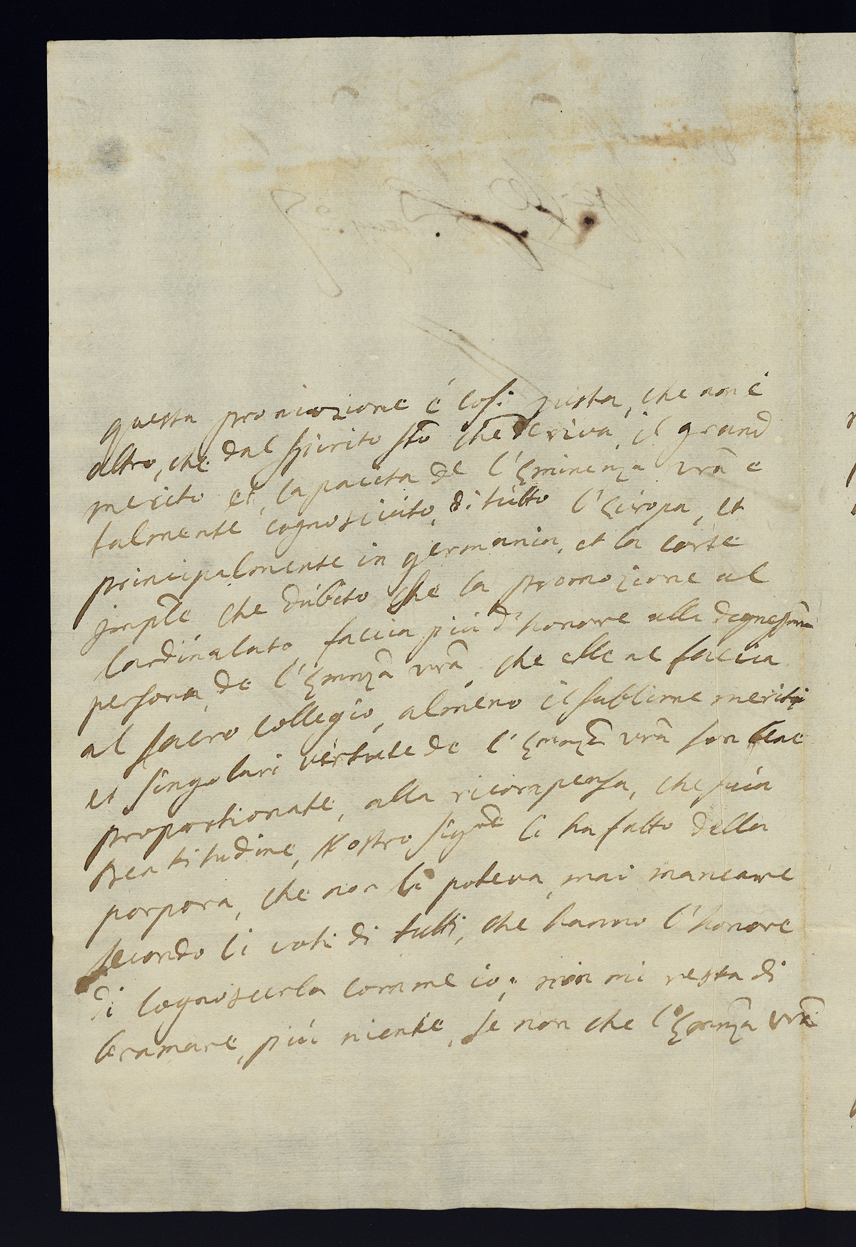 questa promozione é cosi giusta, che non é
altro, che dal spirito sto che deriva, il grand
merito et, capaceta de l'Eminenza vra e
talmente cognosciuto, di tutto l'Europa, et
principalmente in germania, et la corte
che dubito che la promozione al
Cardinalato, faccia piu d'honore alla degnessima
persona, de l'Emnza vra, che elle ne faccia
al sacro collegio, almeno il sublime merito
et singolari vertute de l'Emnza vra son bene
proportionate, alla ricompensa, che suia
Beatitudine, Nostro Signre li ha fatto della
porpora, che non li poteva, mai mancare
secondo li voti di tutti, che hanno l'honore
di cognoscerla comme io; non mi resta di
bramare, piu niente, se non che l'Emnza vra